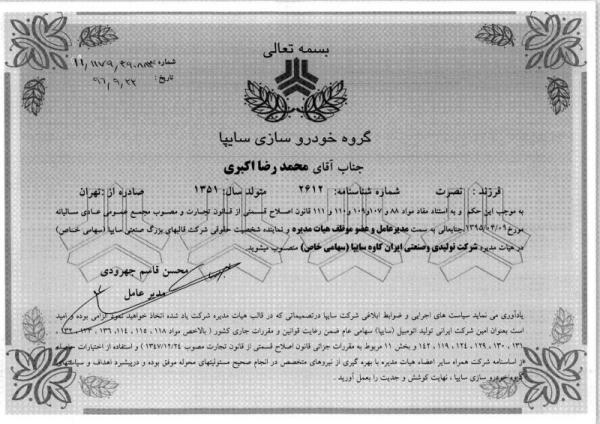 بسمه تعالی
شماره
تاریخ: ۹۶٫۹٫۲۲
گروه خودرو سازی سایپا
جناب آقای محمد رضا اکبری
فرزند: نصرت شماره شناسنامه: ۲۶۱۲ متولد سال: ۱۳۵۱ صادره از: تهران
به موجب این حکم و به استناد مفاد مواد ۸۸ و ۱۰۷و ۱۰۹و ۱۱۰و ۱۱۱ قانون اصلاح قسمتی از قانون تجارت و مصوب مجمع عمومی عادی سالیانه
مورخ ۱۳۹۵/۰۴/۰۹،جنابعالی به سمت مدیرعامل و عضو موظف هیات مدیره و نماینده شخصیت حقوقی شرکت قالبهای بزرگ صنعتی سایپا (سهامی خاص)
در هیات مدیره شرکت تولیدی وصنعتی ایران کاوه سایپا (سهامی خاص) منصوب میشوید.
محسن قاسم جهرودی
مدیر عامل
یادآوری می نماید سیاست های اجرایی و ضوابط ابلاغی شرکت سایپا درتصمیماتی که در قالب هیات مدیره شرکت یاد شده اتخاذ خواهید نمود الزامی بوده و امید
است بعنوان امین شرکت ایرانی تولید اتومبیل (سایپا) سهامی عام ضمن رعایت قوانین و مقررات جاری کشور ( بالاخص مواد ۱۱۸ ، ۱۱۵ ، ۱۱۴ ، ۱۳۶ ، ۱۳۳ ، ۱۳۲ ،
۱۳۱ ، ۱۳۰ ، ۱۲۹ ، ۱۲۴ ، ۱۱۹ ، ۱۴۲ و بخش ۱۱ مربوط به مقررات جزائی قانون اصلاح قسمتی از قانون تجارت مصوب ۱۳۴۷/۱۲/۲۴) و استفاده از اختیارات حاصله
از اساسنامه شرکت همراه سایر اعضاء هیات مدیره با بهره گیری از نیروهای متخصص در انجام صحیح مسئولیتهای محوله موفق بوده و درپیشبرد اهداف و سیاستهای
گروه خودرو سازی سایپا ، نهایت کوشش و جدیت را بعمل آورید .